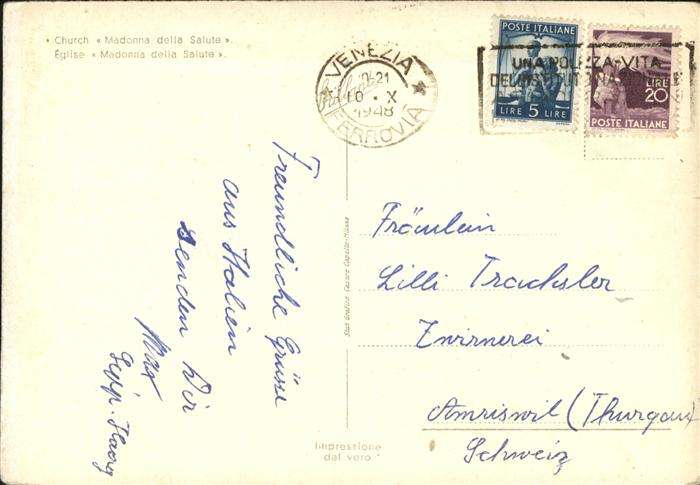 • Church « Madonna della Salute ».
Église « Madonna della Salute ».
VENEZIA
10-21
10 • X
1948
FERROVIA
POSTE ITALIANE
LIRE 5 LIRE
LIRE
20
POSTE ITALIANE
UNA POLIZZA-VITA
Freundliche Grüsse
aus Italien
senden Dir
Max
Sepp
Fräulein
Lilli Trachsler
Zwirnerei
Amriswil (Thurgau)
Schweiz
Impressione
dal vero